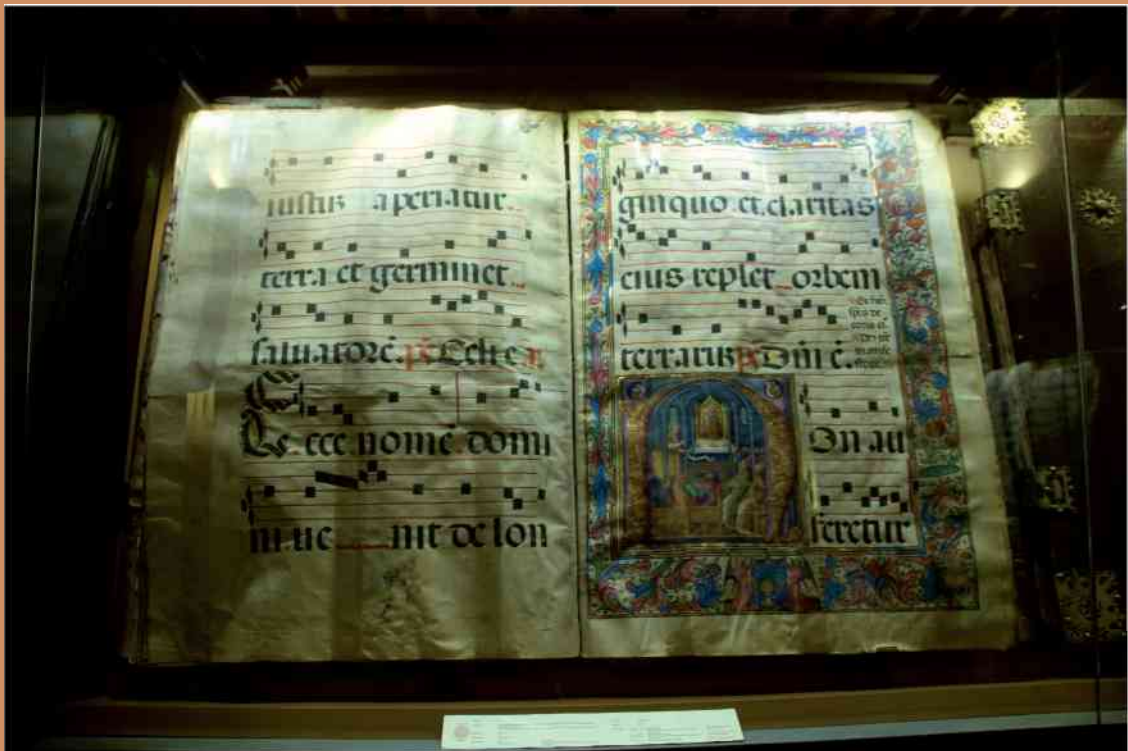 iustuz aperiatur
terra et germinet
saluatorē. ps Celi e
Ec ecce nomē domi
ni ue nit de lon
ginquo et claritas
eius replet orbem
terraruz ps Dñi ē.
On au
feretur